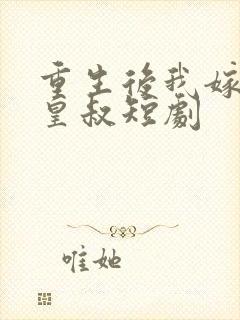 重生後我嫁
皇叔短劇
唯她